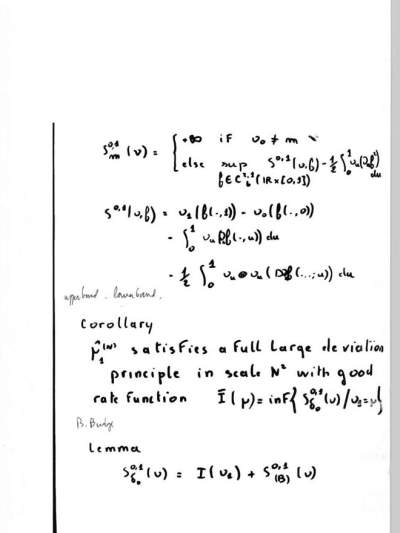 S_m^{0,1}(υ) = { +∞ if υ_0 ≠ m
else sup_{f∈C_b^{2,1}(ℝ×[0,1])} S^{0,1}(υ,f) - 1/2 ∫_0^1 υ_u(∂_x f²) du
S^{0,1}(υ,f) = υ_1(f(.,1)) - υ_0(f(.,0))
- ∫_0^1 υ_u(∂f(.,u)) du
- 1/2 ∫_0^1 υ_u⊗υ_u(D∂f(..,;u)) du
upper bound. lower bound.
Corollary
μ̂_1^{(N)} satisfies a full large deviation
principle in scale N² with good
rate function Ī(μ) = inf{ S_{δ_0}^{0,1}(υ) / υ_1=μ}
B. Bridge
Lemma
S_{δ_0}^{0,1}(υ) = I(υ_1) + S_{(B)}^{0,1}(υ)